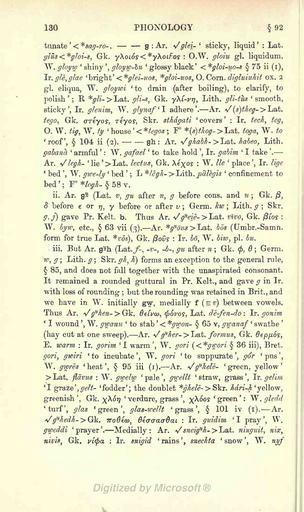 130 PHONOLOGY § 92
tunate' <*sag-ro-. — — g : Ar. √gleį- 'sticky, liquid': Lat.
glūs <*gloi-s, Gk. γλοιός <*γλοιϝος : O.W. gloiu gl. liquidum.
W. gloyw 'shiny', gloyw-ðu 'glossy black' <*gloi-u̯o-s § 75 ii (1),
Ir. glé, glae 'bright' <*glei-u̯os, *gloi-u̯os, O.Corn. digluiuhit ox. 2
gl. eliqua, W. gloywi 'to drain (after boiling), to clarify, to
polish'; R *gli-> Lat. gli-s, Gk. γλί-νη, Lith. gli-tùs 'smooth,
sticky', Ir. glenim, W. glynaf 'I adhere'.—Ar. √(s)theg-> Lat.
tego, Gk. στέγος, τέγος, Skr. sthágati 'covers' : Ir. tech, teg,
O. W. tig, W. ty 'house' <*tegos; F° *(s)thog-> Lat. toga, W. to
'roof', § 104 ii (2). — — gh : Ar. √ghabh-> Lat. habeo, Lith.
gabanà 'armful' : W. gafael 'to take hold', Ir. gabim 'I take'.—
Ar. √legh- 'lie'> Lat. lectus, Gk. λέχος : W. lle 'place', Ir. lige
'bed', W. gwe-ly 'bed'; L *lēgh-> Lith. pãlėgis 'confinement to
bed'; F° *logh- § 58 v.
ii. Ar. gᵘ̯ (Lat. v, gu after n, g before cons. and u; Gk. β,
δ before ε or η, γ before or after υ; Germ. kw; Lith. g; Skr.
g, j) gave Pr. Kelt. b. Thus Ar. √gᵘ̯eįē-> Lat. vīvo, Gk. βίος :
W. byw, etc., § 63 vii (3).—Ar. *gᵘ̯ōus > Lat. bōs (Umbr.-Samn.
form for true Lat. *vōs), Gk. βοῦς : Ir. bō, W. biw, pl. bu.
iii. But Ar. gᵘ̯h (Lat. f-, -v-, -b-, gu after n; Gk. φ, θ; Germ.
w, g; Lith. g; Skr. gh, h) forms an exception to the general rule,
§ 85, and does not fall together with the unaspirated consonant.
It remained a rounded guttural in Pr. Kelt., and gave g in Ir.
with loss of rounding; but the rounding was retained in Brit., and
we have in W. initially gw, medially f (≡ v) between vowels.
Thus Ar. √gᵘ̯hen-> Gk. θείνω, φόνος, Lat. dē-fen-do : Ir. gonim
'I wound', W. gwanu 'to stab' <*gu̯on- § 65 v, gwanaf 'swathe'
(hay cut at one sweep).—Ar. √gᵘ̯her-> Lat. formus, Gk. θερμός,
E. warm : Ir. gorim 'I warm', W. gori (<*gwori § 36 iii), Bret.
gori, gwiri 'to incubate', W. gori 'to suppurate', gôr 'pus',
W. gwrēs 'heat', § 95 iii (1).—Ar. √gᵘ̯helē- 'green, yellow'
> Lat. flāvus : W. gwelw 'pale', gwellt 'straw, grass', Ir. gelim
'I graze', gelt- 'fodder'; the doublet *ĝhelē-> Skr. hári-ḥ 'yellow,
greenish', Gk. χλόη 'verdure, grass', χλόος 'green' : W. gledd
'turf', glas 'green', glas-wellt 'grass', § 101 iv (1).—Ar.
√gᵘ̯hedh-> Gk. ποθέω, θέσσασθαι : Ir. guidim 'I pray', W.
gweddi 'prayer'.—Medially : Ar. √sneigᵘ̯h-> Lat. ninguit, nix,
nivis, Gk. νίφα : Ir. snigid 'rains', snechta 'snow', W. nyf
Digitized by Microsoft ®